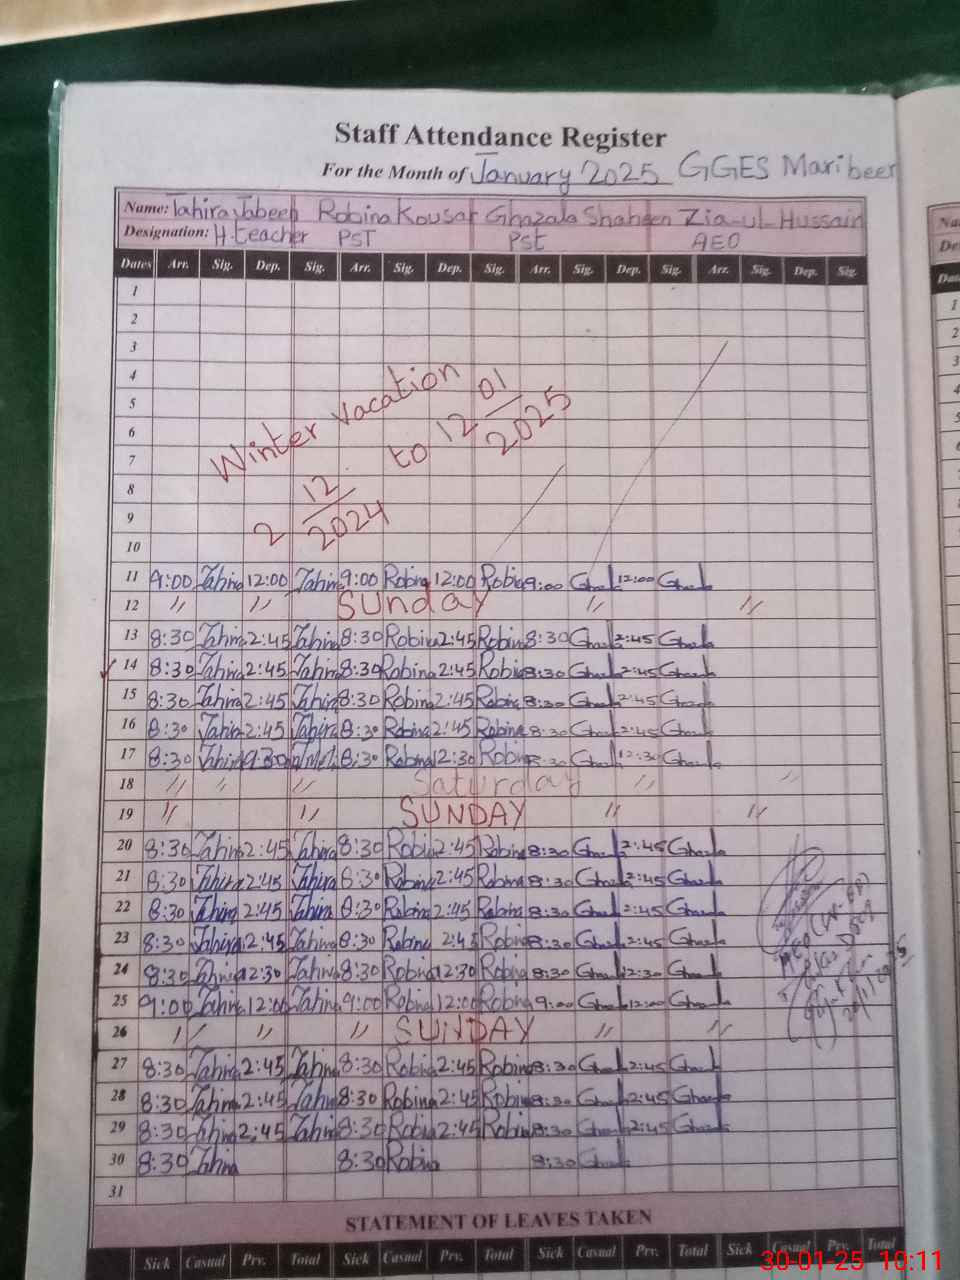 Staff Attendance Register
For the Month of January 2025 GGES Maribeer
Name: Tahira Jabeen Robina Kousar Ghazala Shaheen Zia-ul-Hussain
Designation: H.teacher PST Pst AEO
Dates Arr. Sig. Dep. Sig. Arr. Sig. Dep. Sig. Arr. Sig. Dep. Sig. Arr. Sig. Dep. Sig.
1
2
3
4
5
6
7
8
9
10
Winter vacation
2 12/2024 to 12 01/2025
11 9:00 Tahira 12:00 Tahira 9:00 Robina 12:00 Robina 9:00 12:00
12 " " Sunday " "
13 8:30 Tahira 2:45 Tahira 8:30 Robina 2:45 Robina 8:30 2:45
14 8:30 Tahira 2:45 Tahira 8:30 Robina 2:45 Robina 8:30 2:45
15 8:30 Tahira 2:45 Tahira 8:30 Robina 2:45 Robina 8:30 2:45
16 8:30 Tahira 2:45 Tahira 8:30 Robina 2:45 Robina 8:30 2:45
17 8:30 Tahira 8:30 Robina 12:30 Robina 8:30 12:30
18 " " " Saturday " "
19 " " SUNDAY " "
20 8:30 Tahira 2:45 Tahira 8:30 Robina 2:45 Robina 8:30 2:45
21 8:30 Tahira 2:45 Tahira 8:30 Robina 2:45 Robina 8:30 2:45
22 8:30 Tahira 2:45 Tahira 8:30 Robina 2:45 Robina 8:30 2:45
23 8:30 Tahira 2:45 Tahira 8:30 Robina 2:45 Robina 8:30 2:45
24 8:30 Tahira 12:30 Tahira 8:30 Robina 12:30 Robina 8:30 12:30
25 9:00 Tahira 12:00 Tahira 9:00 Robina 12:00 Robina 9:00 12:00
26 " " " SUNDAY " "
27 8:30 Tahira 2:45 Tahira 8:30 Robina 2:45 Robina 8:30 2:45
28 8:30 Tahira 2:45 Tahira 8:30 Robina 2:45 Robina 8:30 2:45
29 8:30 Tahira 2:45 Tahira 8:30 Robina 2:45 Robina 8:30 2:45
30 8:30 Tahira 8:30 Robina 8:30
31
STATEMENT OF LEAVES TAKEN
Sick Casual Prv. Total Sick Casual Prv. Total Sick Casual Prv. Total Sick Casual Prv. Total
30-01-25 10:11